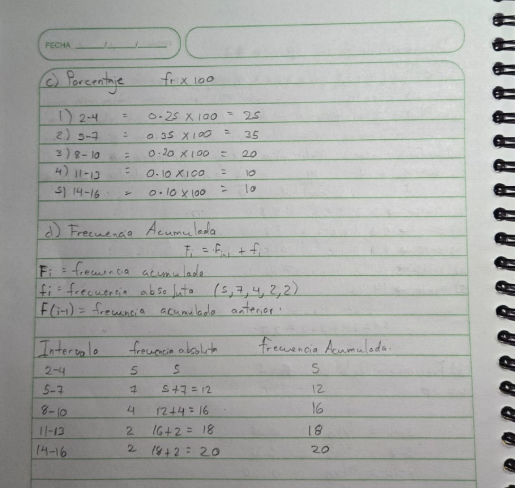 FECHA
c) Porcentaje fr x 100
1) 2-4 = 0.25 x 100 = 25
2) 5-7 = 0.35 x 100 = 35
3) 8-10 = 0.20 x 100 = 20
4) 11-13 = 0.10 x 100 = 10
5) 14-16 = 0.10 x 100 = 10
d) Frecuencia Acumulada
Fi = Fi-1 + fi
Fi = frecuencia acumulada
fi = frecuencia absoluta (5,7,4,2,2)
F(i-1) = frecuencia acumulada anterior.
Intervalo frecuencia absoluta frecuencia Acumulada.
2-4 5 5 5
5-7 7 5+7=12 12
8-10 4 12+4=16 16
11-13 2 16+2=18 18
14-16 2 18+2=20 20